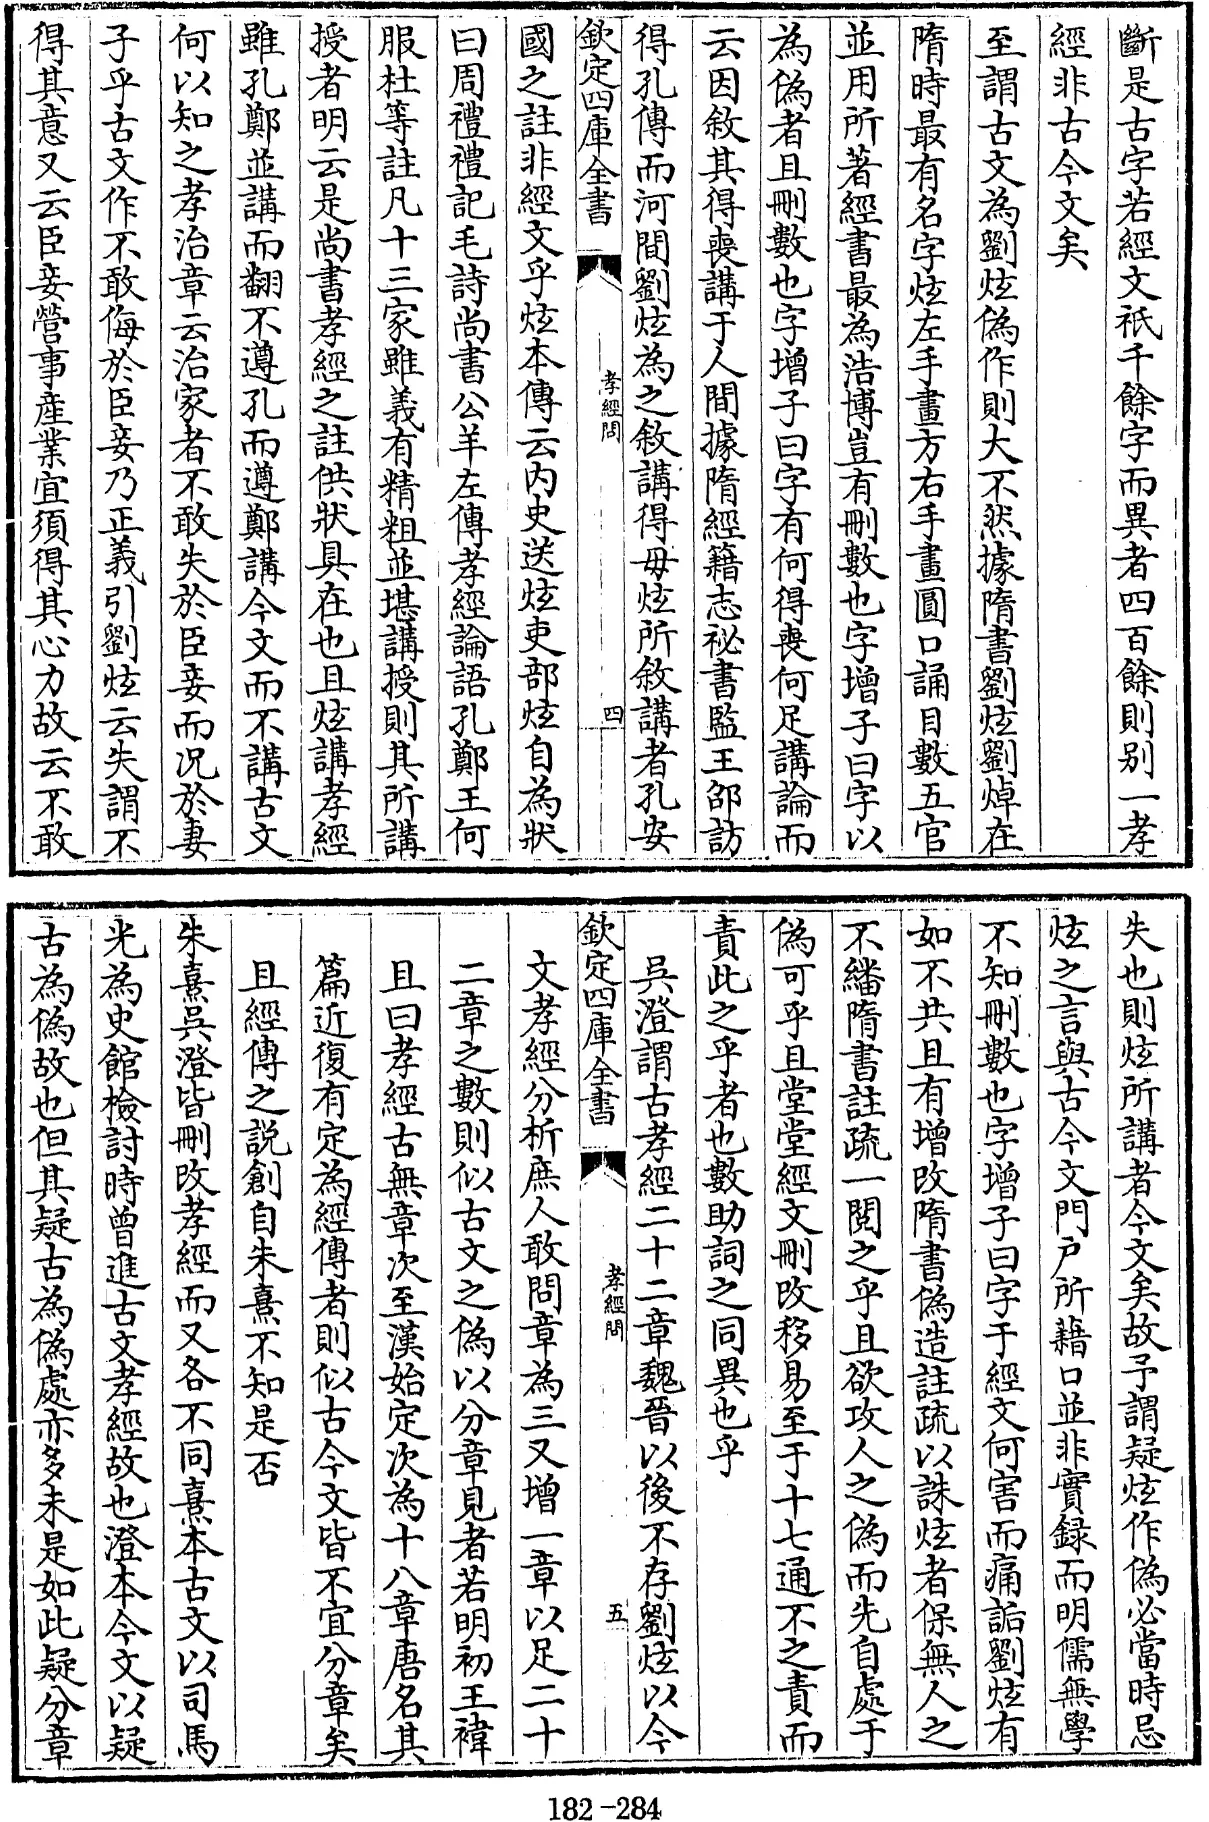 斷是古字若經文祇千餘字而異者四百餘則别一孝
經非古今文矣
至謂古文為劉炫偽作則大不然據隋書劉炫劉焯在
隋時最有名字炫左手畫方右手畫圓口誦目數五官
並用所著經書最為浩博豈有刪數也字增子曰字以
為偽者且刪數也字增子曰字有何得喪何足講論而
云因敘其得喪講于人間據隋經籍志祕書監王邵訪
得孔傳而河間劉炫為之敘講得毋炫所敘講者孔安
欽定四庫全書
孝經問
四
國之註非經文乎炫本傳云内史送炫吏部炫自為狀
曰周禮禮記毛詩尚書公羊左傳孝經論語孔鄭王何
服杜等註凡十三家雖義有精粗並堪講授則其所講
授者明云是尚書孝經之註供狀具在也且炫講孝經
雖孔鄭並講而翻不遵孔而遵鄭講今文而不講古文
何以知之孝治章云治家者不敢失於臣妾而况於妻
子乎古文作不敢侮於臣妾乃正義引劉炫云失謂不
得其意又云臣妾營事産業宜須得其心力故云不敢
失也則炫所講者今文矣故予謂疑炫作偽必當時忌
炫之言與古今文門户所藉口並非實録而明儒無學
不知刪數也字增子曰字于經文何害而痛詬劉炫有
如不共且有增改隋書偽造註疏以誅炫者保無人之
不繙隋書註疏一閲之乎且欲攻人之偽而先自處于
偽可乎且堂堂經文刪改移易至于十七通不之責而
責此之乎者也數助詞之同異也乎
吳澄謂古孝經二十二章魏晉以後不存劉炫以今
欽定四庫全書
孝經問
五
文孝經分析庶人敢問章為三又增一章以足二十
二章之數則似古文之偽以分章見者若明初王禕
且曰孝經古無章次至漢始定次為十八章唐名其
篇近復有定為經傳者則似古今文皆不宜分章矣
且經傳之説創自朱熹不知是否
朱熹吳澄皆刪改孝經而又各不同熹本古文以司馬
光為史館檢討時曾進古文孝經故也澄本今文以疑
古為偽故也但其疑古為偽處亦多未是如此疑分章
182-284